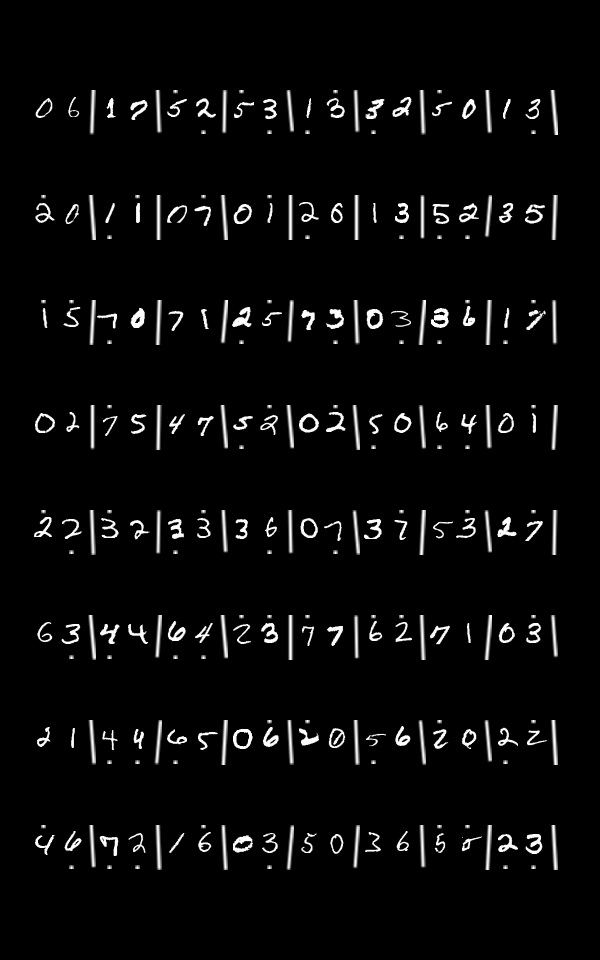 0 6 | 1 7 | 5̇ 2̣ | 5̇ 3̣ | 1̣ 3̇ | 3̣ 2 | 5̇ 0 | 1 3̣ |
2̇ 0 | 1̣ 1̇ | 0 7̇ | 0 1̇ | 2̣ 6 | 1 3̣ | 5̣ 2̣ | 3 5 |
1̇ 5̇ | 7̣ 0 | 7 1 | 2̣ 5̇ | 7 3̣ | 0 3̣ | 3̣ 6̇ | 1̣ 7̇ |
0 2̇ | 7̇ 5 | 4 7 | 5̣ 2̇ | 0 2̇ | 5̣ 0 | 6̣ 4̣ | 0 1̇ |
2̇ 2̣ | 3̇ 2 | 3̣ 3̇ | 3 6̣ | 0 7̣ | 3 7̇ | 5 3̇ | 2̇ 7 |
6 3̣ | 4̣ 4 | 6̣ 4̣ | 2̇ 3̇ | 7̇ 7 | 6̇ 2̇ | 7 1 | 0 3̇ |
2 1 | 4̣ 4̣ | 6̣ 5 | 0 6̇ | 2̇ 0 | 5̣ 6 | 2̇ 0 | 2̣ 2̇ |
4̇ 6̣ | 7̣ 2̣ | 1 6̇ | 0 3̣ | 5 0 | 3 6 | 5̇ 5̇ | 2̣ 3̣ |